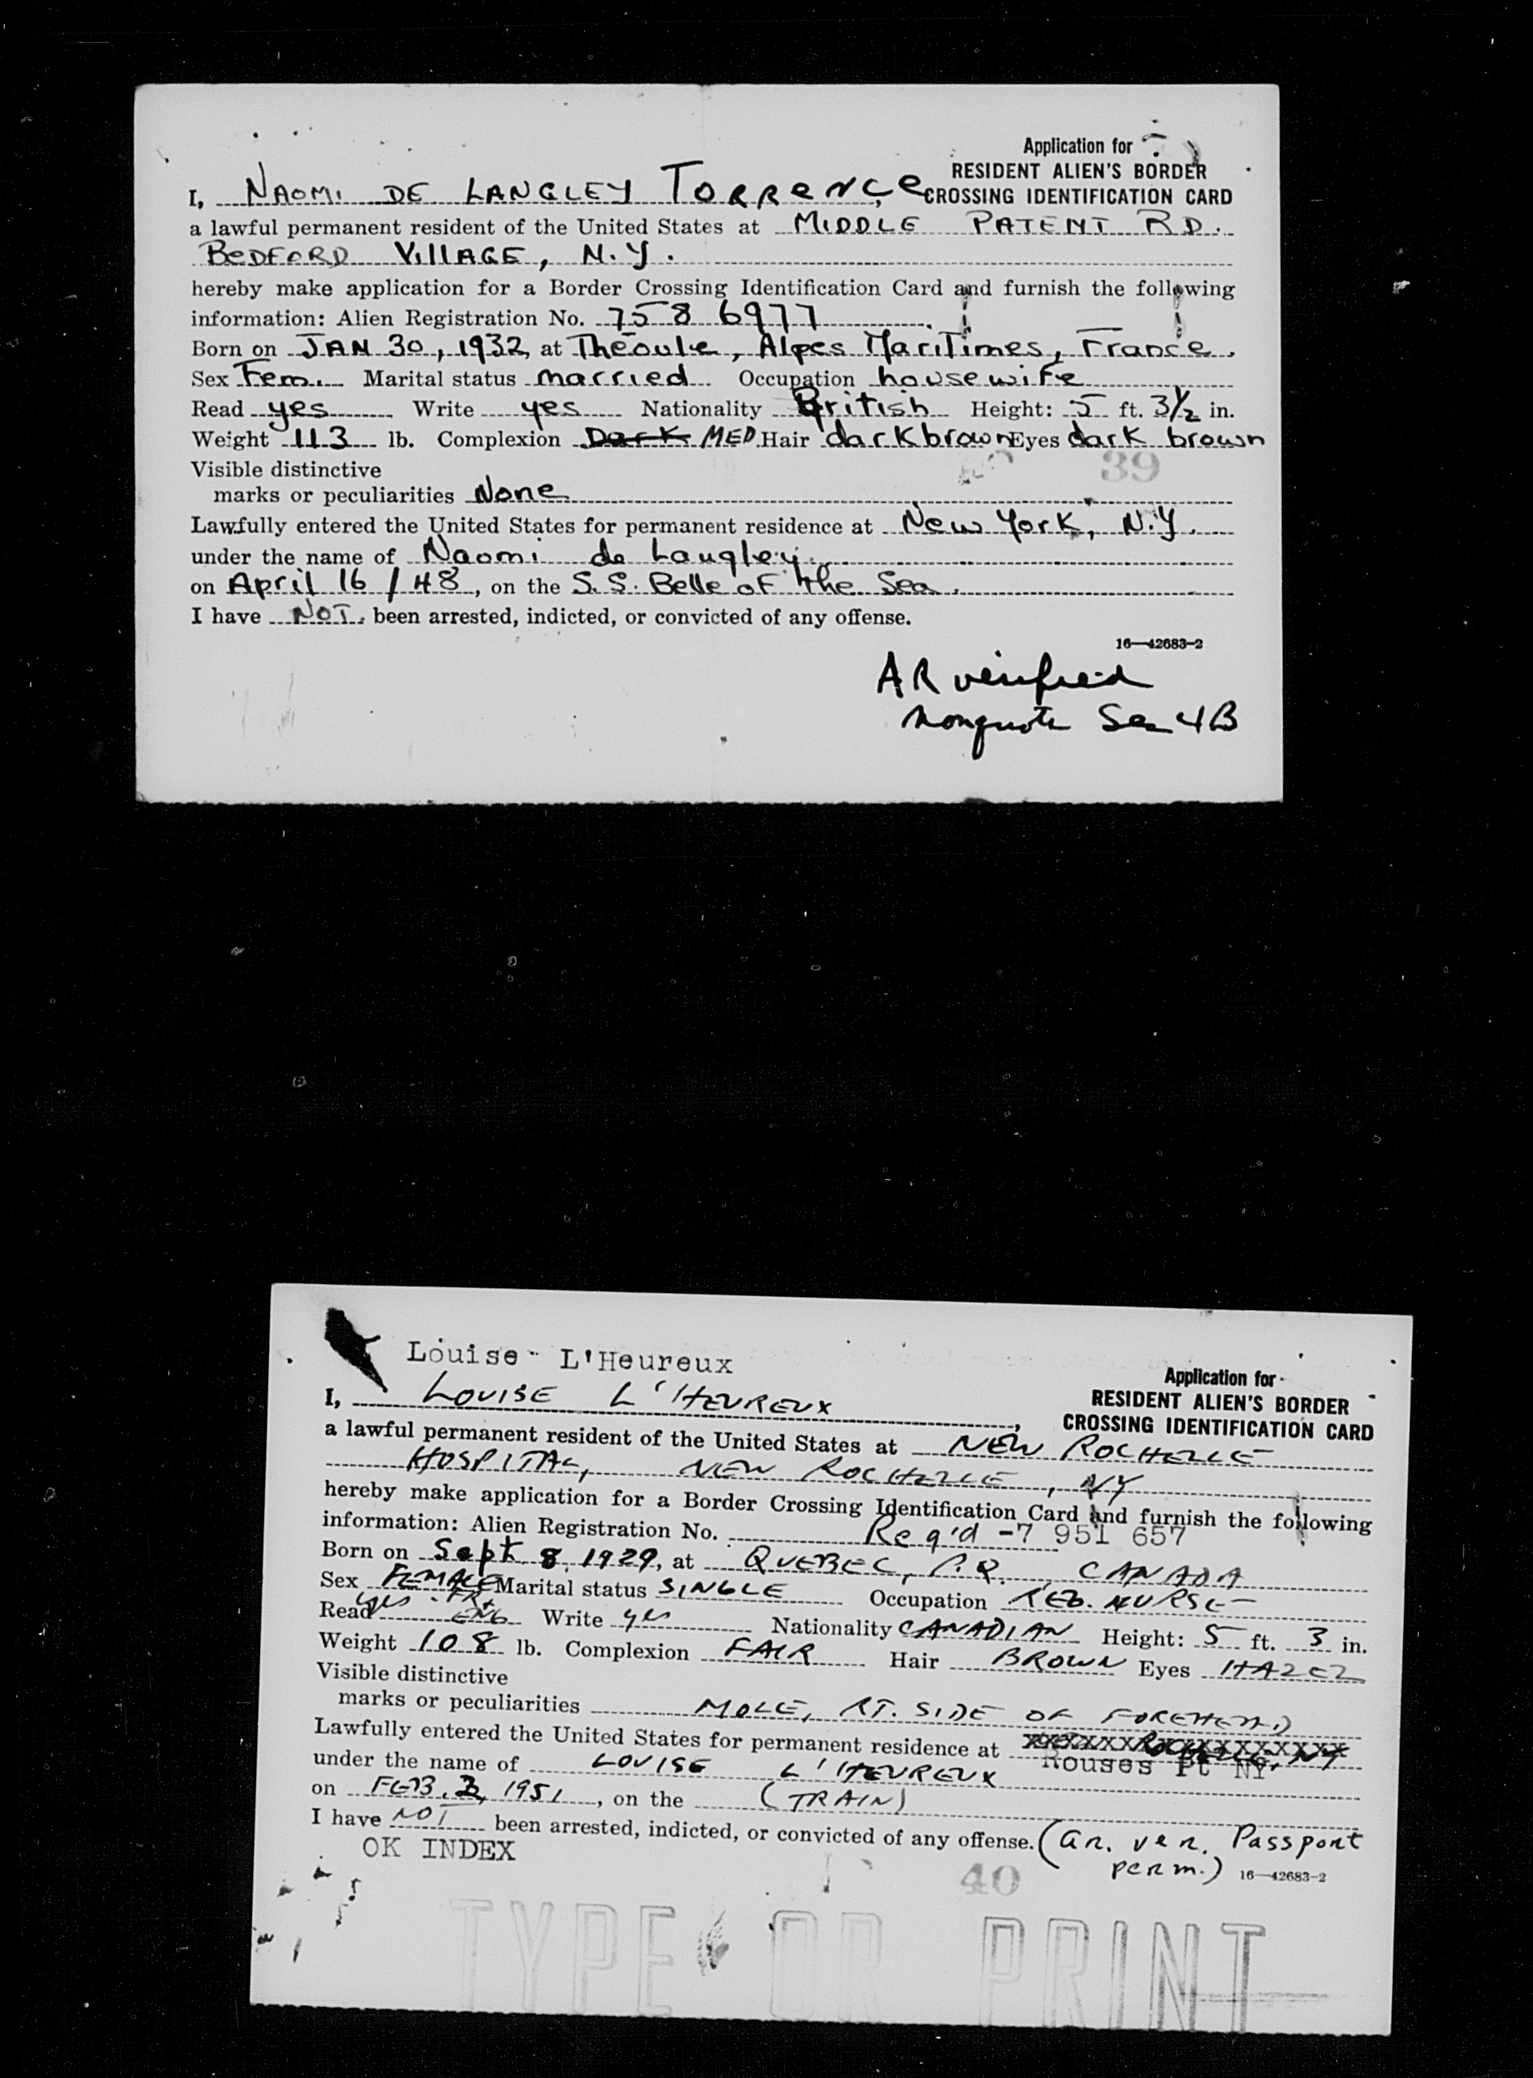 Application for
RESIDENT ALIEN'S BORDER
I, NAOMI DE LANGLEY TORRENCE, CROSSING IDENTIFICATION CARD
a lawful permanent resident of the United States at MIDDLE PATENT RD.
BEDFORD VILLAGE, N.Y.
hereby make application for a Border Crossing Identification Card and furnish the following
information: Alien Registration No. 758 6977.
Born on JAN 30, 1932, at Théoule, Alpes Maritimes, France.
Sex Fem. Marital status married Occupation housewife
Read yes Write yes Nationality British Height: 5 ft. 3½ in.
Weight 113 lb. Complexion Dark MED. Hair dark brown Eyes dark brown
Visible distinctive 39
marks or peculiarities None
Lawfully entered the United States for permanent residence at New York, N.Y.
under the name of Naomi de Langley.
on April 16/48, on the S.S. Belle of the Sea.
I have NOT. been arrested, indicted, or convicted of any offense.
16—42683-2
AR verified
nonquota Sec 4B
Louise L'Heureux
Application for
RESIDENT ALIEN'S BORDER
I, LOUISE L'HEUREUX, CROSSING IDENTIFICATION CARD
a lawful permanent resident of the United States at NEW ROCHELLE
HOSPITAL, NEW ROCHELLE, NY
hereby make application for a Border Crossing Identification Card and furnish the following
information: Alien Registration No. Req'd -7 951 657
Born on Sept. 8, 1929, at QUEBEC, P.Q., CANADA
Sex FEMALE Marital status SINGLE Occupation REG. NURSE
Read yes - FR + ENG Write yes Nationality CANADIAN Height: 5 ft. 3 in.
Weight 108 lb. Complexion FAIR Hair BROWN Eyes HAZEL
Visible distinctive
marks or peculiarities MOLE, RT. SIDE OF FOREHEAD
Lawfully entered the United States for permanent residence at Rouses Pt NY
under the name of LOUISE L'HEUREUX
on FEB. 2, 1951, on the (TRAIN)
I have NOT been arrested, indicted, or convicted of any offense. (ar. ver. Passport
perm.)
OK INDEX
16—42683-2
40
TYPE OR PRINT